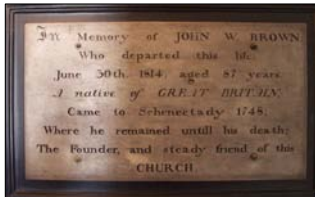 In Memory of JOHN W. BROWN
Who departed this life
June 30th. 1814, aged 87 years.
A native of GREAT BRITAIN:
Came to Schenectady 1748,
Where he remained untill his death;
The Founder, and steady friend of this
CHURCH.